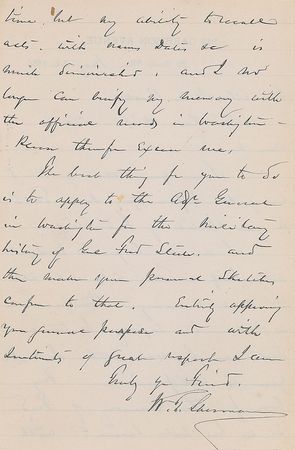 time, but my ability to recall
acts, with names Dates, &c is
much diminished, and I no
longer can verify my memory with
the official records in Washington -
Please therefore Excuse me.
The best thing for you to do
is to apply to the Adjt General
in Washington for the Military
history of Genl Fred Steele. and
then make your personal Sketches
conform to that. Entirely approving
your general purpose and with
Sentiments of great respect I am
Truly yr friend.
W. T. Sherman